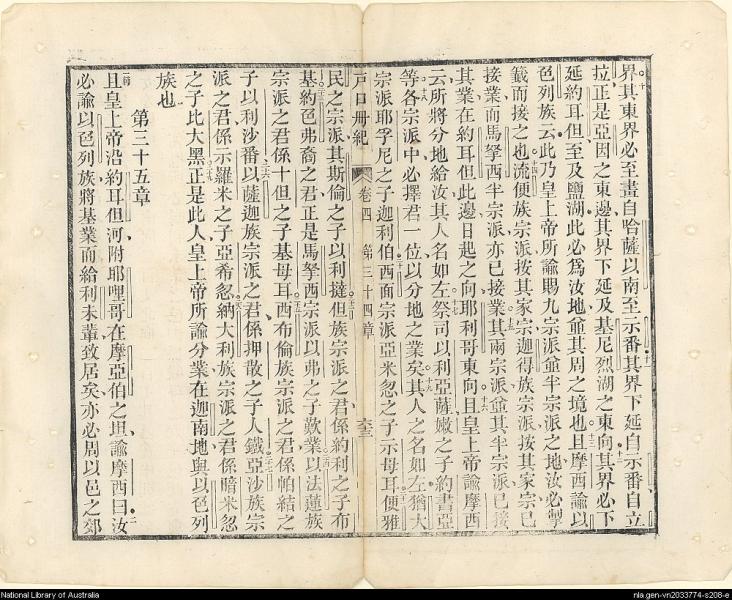 界其東界必至畫自哈薩以南至示番其界下延自示番自立
拉正是亞因之東邊其界下延及基尼烈湖之東向其界必下
延約耳但至及鹽湖此必為汝地僉其周之境也且摩西諭以
色列族云此乃皇上帝所諭賜九宗派僉半宗派之地汝必掣
籤而接之也流便族宗派按其家宗迦得族宗派按其家宗已
接業而馬拏西半宗派亦已接業其兩宗派僉其半宗派已接
其業在約耳但此邊日起之向耶利哥東向且皇上帝諭摩西
云所將分地給汝其人名如左祭司以利亞薩嫩之子約書亞
等各宗派中必擇君一位以分地之業矣其人之名如左猶大
宗派耶孚尼之子迦利伯西面宗派亞米忽之子示母耳便雅
戶口冊紀 卷四 第三十四章 六三
民之宗派其斯倫之子以利撻但族宗派之君係約利之子布
基約色弗裔之君正是馬拏西宗派以弗之子歎業以法蓮族
宗派之君係十但之子基母耳西布倫族宗派之君係帕結之
子以利沙番以薩迦族宗派之君係押散之子人鐵亞沙族宗
派之君係示羅米之子亞希忽納大利族宗派之君係暗米忽
之子比大黑正是此人皇上帝所諭分業在迦南地與以色列
族也
第三十五章
且皇上帝沿約耳但河附耶哩哥在摩亞伯之坦諭摩西曰汝
必諭以色列族將基業而給利未輩致居矣亦必周以邑之郊
National Library of Australia
nla.gen-vn2033774-s208-e